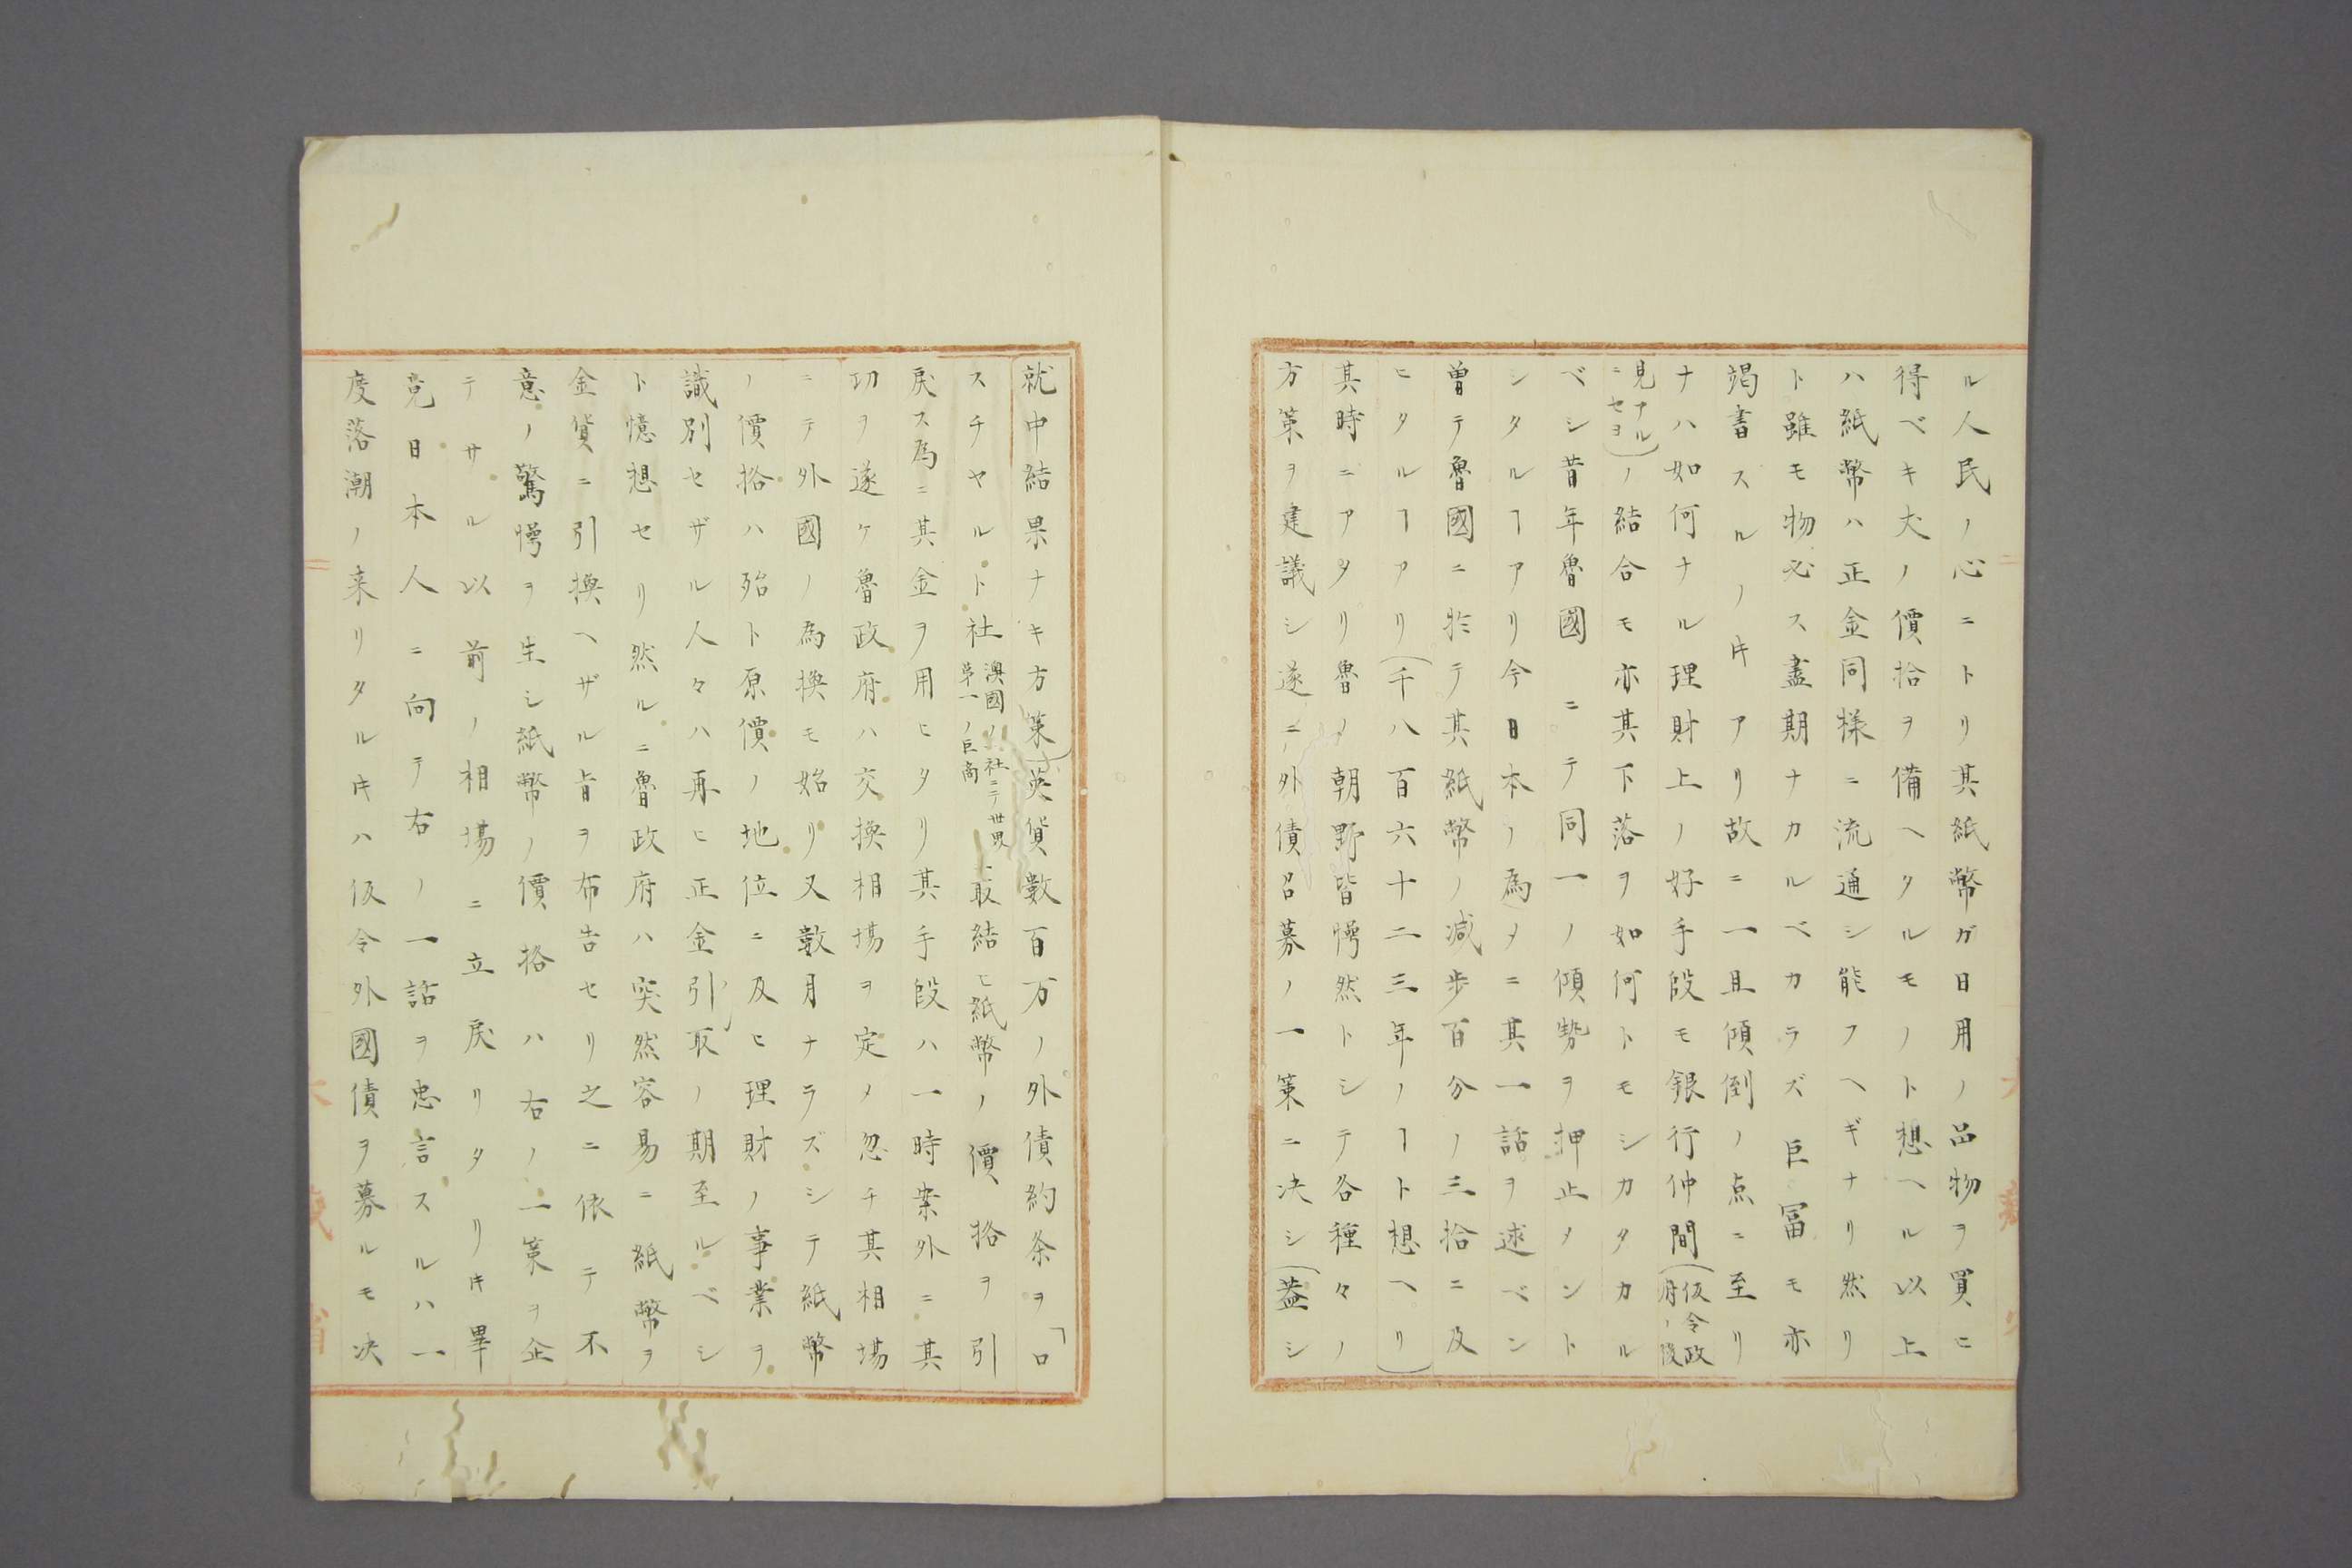 ル人民ノ心ニトリ其紙幣ガ日用ノ品物ヲ買ヒ
得ベキ丈ノ價拾ヲ備ヘタルモノト想ヘル以上
ハ紙幣ハ正金同様ニ流通シ能フヘギナリ然リ
ト雖モ物必ス盡期ナカルベカラズ巨冨モ亦
竭書スルノキアリ故ニ一且傾倒ノ点ニ至リ
ナハ如何ナル理財上ノ好手段モ銀行仲間(仮令政
府ノ設
見ナル
ニセヨ)ノ結合モ亦其下落ヲ如何トモシカタカル
ベシ昔年魯國ニテ同一ノ傾勢ヲ押止メント
シタルヿアリ今日本ノ為メニ其一話ヲ述ベン
曽テ魯國ニ於テ其紙幣ノ减歩百分ノ三拾ニ及
ヒタルヿアリ(千八百六十二三年ノヿト想ヘリ)
其時ニアタリ魯ノ朝野皆愕然トシテ各種々ノ
方策ヲ建議シ遂ニ外債召募ノ一策ニ决シ(蓋シ
就中結果ナキ方策)英貨數百万ノ外債約条ヲ「ロ
スチヤルト社澳國ノ社ニテ世界
第一ノ巨商ニ取結ヒ紙幣ノ價格ヲ引
戻ス為ニ其金ヲ用ヒタリ其手段ハ一時案外ニ其
功ヲ遂ケ魯政府ハ交換相場ヲ定メ忽チ其相場
ニテ外國ノ為換モ始リ又數月ナラズシテ紙幣
ノ價拾ハ殆ト原價ノ地位ニ及ヒ理財ノ事業ヲ
識別セザル人々ハ再ヒ正金引取ノ期至ルベシ
ト憶想セリ然ルニ魯政府ハ突然容易ニ紙幣ヲ
金貨ニ引換ヘザル旨ヲ布告セリ之ニ依テ不
意ノ驚愕ヲ生シ紙幣ノ價格ハ右ノ一策ヲ企
テサル以前ノ相場ニ立戻リタリキ畢
竟日本人ニ向テ右ノ一話ヲ忠言スルハ一
度落潮ノ来リタルキハ仮令外國債ヲ募ルモ决